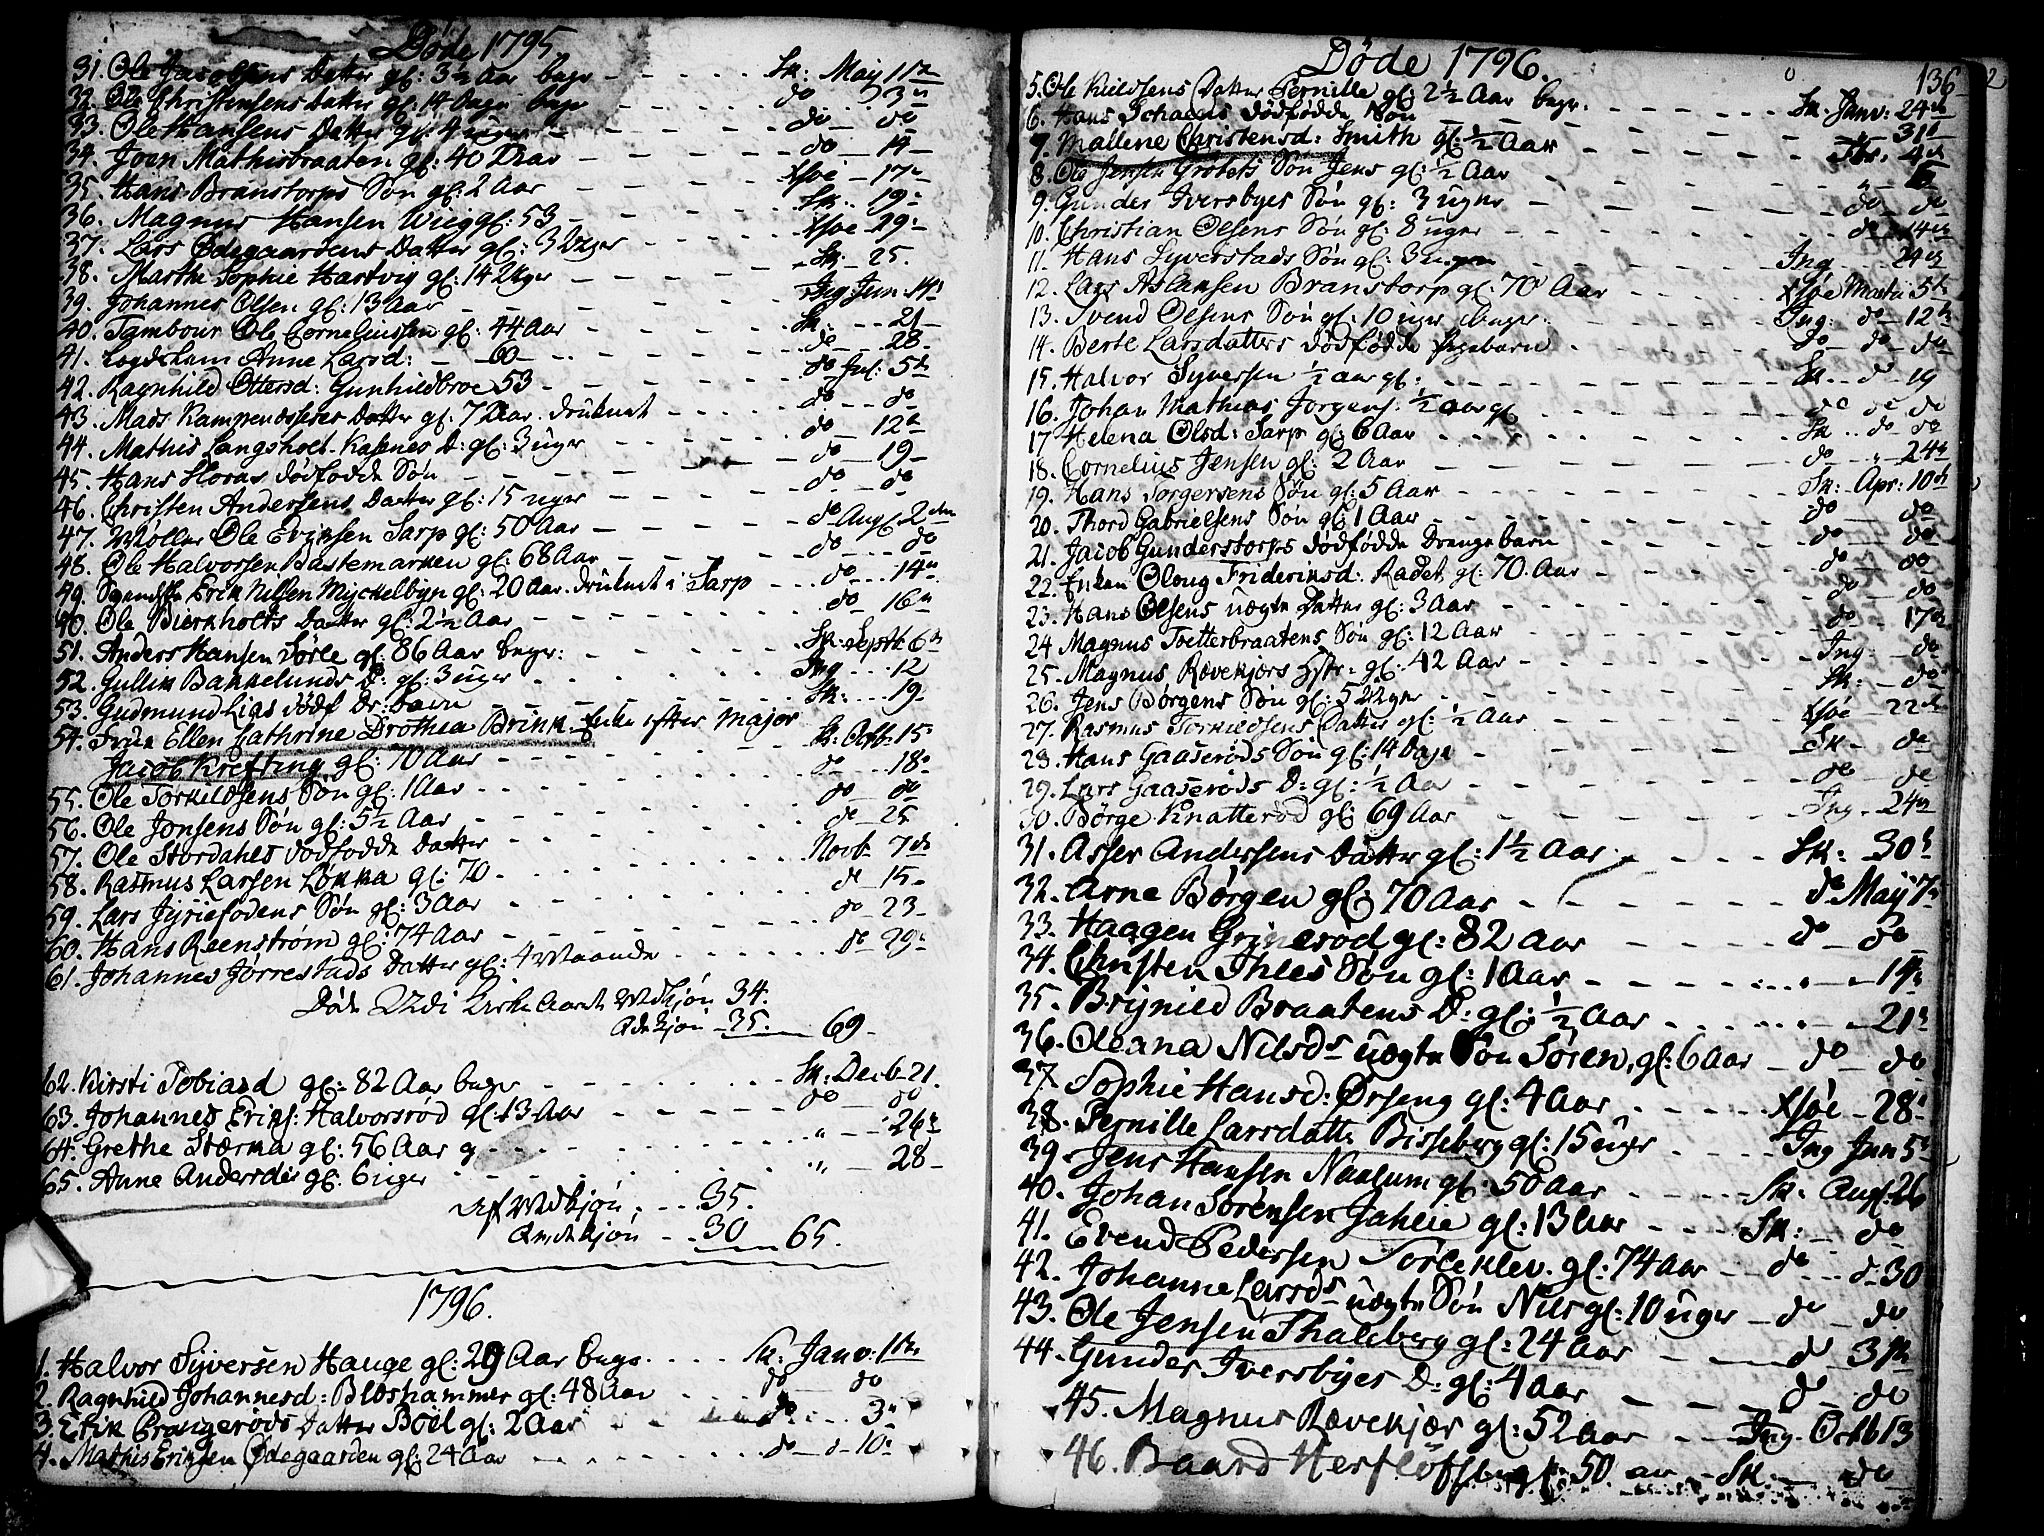 Døde 1795.
31. Ole Jacobsens Datter gl: 3½ Aar begr. Sk: May 11te
32. Ole Christensens Datter gl: 14 Dage begr do 3
33. Ole Hansens Datter gl: 4 uger do do
34. Joen Mathisbraaten gl: 40 Aar do 14
35. Hans Branstorps Søn gl: 2 Aar 17
36. Magnus Hansen Wiig gl: 53 Sk. 19
37. Lars Ødegaardens Datter gl: 3 Uger 29
38. Marthe Sophie Hartvig gl: 14 Uger Sk 25.
39. Johannes Olsen gl: 13 Aar Ing Jun. 14
40. Tambour Ole Corneliussen gl: 44 Aar Sk: 21
41. Logdslem Anne Larsd: 60 do 28
42. Ragnhild Ottersd: Gunhildbroe 53 do Jul: 5te
43. Mads Datter gl: 7 Aar. druknet do do
44. Mathis Langsholt D: gl: 3 uger do 12te
45. Hans Horas dødfødde Søn do 19
46. Christen Andersens Datter gl: 15 uger do do
47. Møller Ole Erichsen Sarp gl: 50 Aar do Aug. 2den
48. Ole Halvorsen Bastemarken gl: 68 Aar do do
49. Erik Nilsen Myckelbyn gl: 20 Aar. druknet i Sarp do 14
40. Ole Bierkholts Datter gl: 2½ Aar do 16
51. Anders Hansen Sørle gl: 86 Aar begr: Sk: Septb 6
52. Gullik Bakkelunds D: gl: 3 uger Ing 12
53. Gudmund Lias dødf Dr: barn Sk: 19
54. Frue Ellen Cathrine Drothea Brink. Enke efter Major
Jacob Krefting gl: 70 Aar Sk: Octb 15
55. Ole Torkildsens Søn gl: 1 Aar do 18
56. Ole Jonsens Søn gl: 5½ Aar do do
57. Ole Stordahls dødfødde Datter do 25
58. Rasmus Larsen Løkka gl: 70 Novb 7de
59. Lars Søn gl: 3 Aar do 15
60. Hans Raenstrøm gl: 74 Aar do 23
61. Johannes Jørrestads Datter gl: 4 Maande do 29
Døde Udi Kirke Aaret Mdkjøn 34.
Qdkjøn 35. 69
62. Kirsti Tobiasd gl: 82 Aar begr Sk: Decb 21.
63. Johannes Erihs: Halvorsrød gl: 13 Aar do do
64. Grethe Stærka gl: 56 Aar " 26
65. Anne Andersdr gl: 6 uger " 28
Af Mdkjøn 35.
Qvndkjøn 30 65.
1796.
1. Halvor Syversen Hauge gl: 29 Aar begr. Sk: Janv: 1te
2. Ragnhild Johannesd: Bloshammer gl: 48 Aar do do
3. Erik Prangerøds Datter Boel gl: 2 Aar do 3
4. Mathis Eriksen Ødegaarden gl: 24 Aar do d 10
Døde 1796.
136
5. Ole Kieldsens Datter Pernille gl: 2½ Aar begr. Sk. Janv: 24de
6. Hans Schaens dødfødde Søn 31
7. Mallene Christensd: Smith gl: ½ Aar 4de
8. Ole Jensen Grotets Søn Jens gl: ½ Aar
9. Gunder Iversbyes Søn gl: 3 uger do do
10. Christian Olsens Søn gl: 8 uger do 14de
11. Hans Syverstads Søn gl: 3 uger Ing 24de
12. Lars Aslaksen Branstorp gl: 70 Aar Martii 5te
13. Svend Olsens Søn gl: 10 uger begr. Ing: do 12te
14. Berte Larsdatters dødfødde Pigebarn do do do
15. Halvor Syversen ½ aar gl: Sk. d 19
16. Johan Mathias Jorgens: ½ aar gl do do do
17 Helena Olsd: Sarp gl: 6 Aar Sk do do
18. Cornelius Jensen gl: 2 Aar do " 24
19. Hans Jorgensens Søn gl: 5 Aar Sk: Apr: 10de
20. Thord Gabrielsens Søn gl 1 Aar do do
21. Jacob Gunderstorps dødfødde Drengebarn do do
22. Enken Oloug Frideriksd: Radet gl: 70 Aar do do
23. Hans Olsens uægte Datter gl: 3 Aar do do
24 Magnus Tvetterbraatens Søn gl: 12 Aar do 17de
25. Magnus Rævekjærs Hstr: gl: 42 Aar Ing do
26. Jens Børgens Søn gl: 5 Uger Sk: do
27. Rasmus Torkildsens Datter gl: ½ Aar 22de
28. Hans Gaaserøds Søn gl: 14 Dage Sk do
29. Lars Gaaserøds D: gl: ½ Aar do do
30. Børge Knatterød gl: 69 Aar Ing 24de
31. Asser Andersens Datter gl: 1½ Aar Sk: 30
32. Arne Børgen gl: 70 Aar do May 7
33. Haagen Grinerød gl: 82 Aar do do
34. Christen Thles Søn gl: 1 Aar 14
35. Brynild Braatens D: gl: ½ Aar 21
36. Oleana Nilsds uægte Søn Søren, gl: 6 Aar do do
37 Sophie Hansd: Ørseng gl: 4 Aar 28
38. Pernille Larsdatter Bisseberg gl: 15 uger Ing Jun 5
39. Jens Hansen Naalum gl: 50 Aar Sk: Aug: 26
40. Johan Sørensen Jahlie gl: 13 Aar Sk: do
41. Evend Pedersen Torleklev. gl: 74 Aar do d 30
42. Johanne Larsds uægte Søn Nils gl: 10 uger do do
43. Ole Jensen Thaleberg gl: 24 Aar d 31te
44. Gunder Iversbyes D: gl: 4 Aar do do
45. Magnus Rævekjær gl: 52 Aar Ing Octb 13
46. Baard Herfløfs gl: 50 aar Sk: do